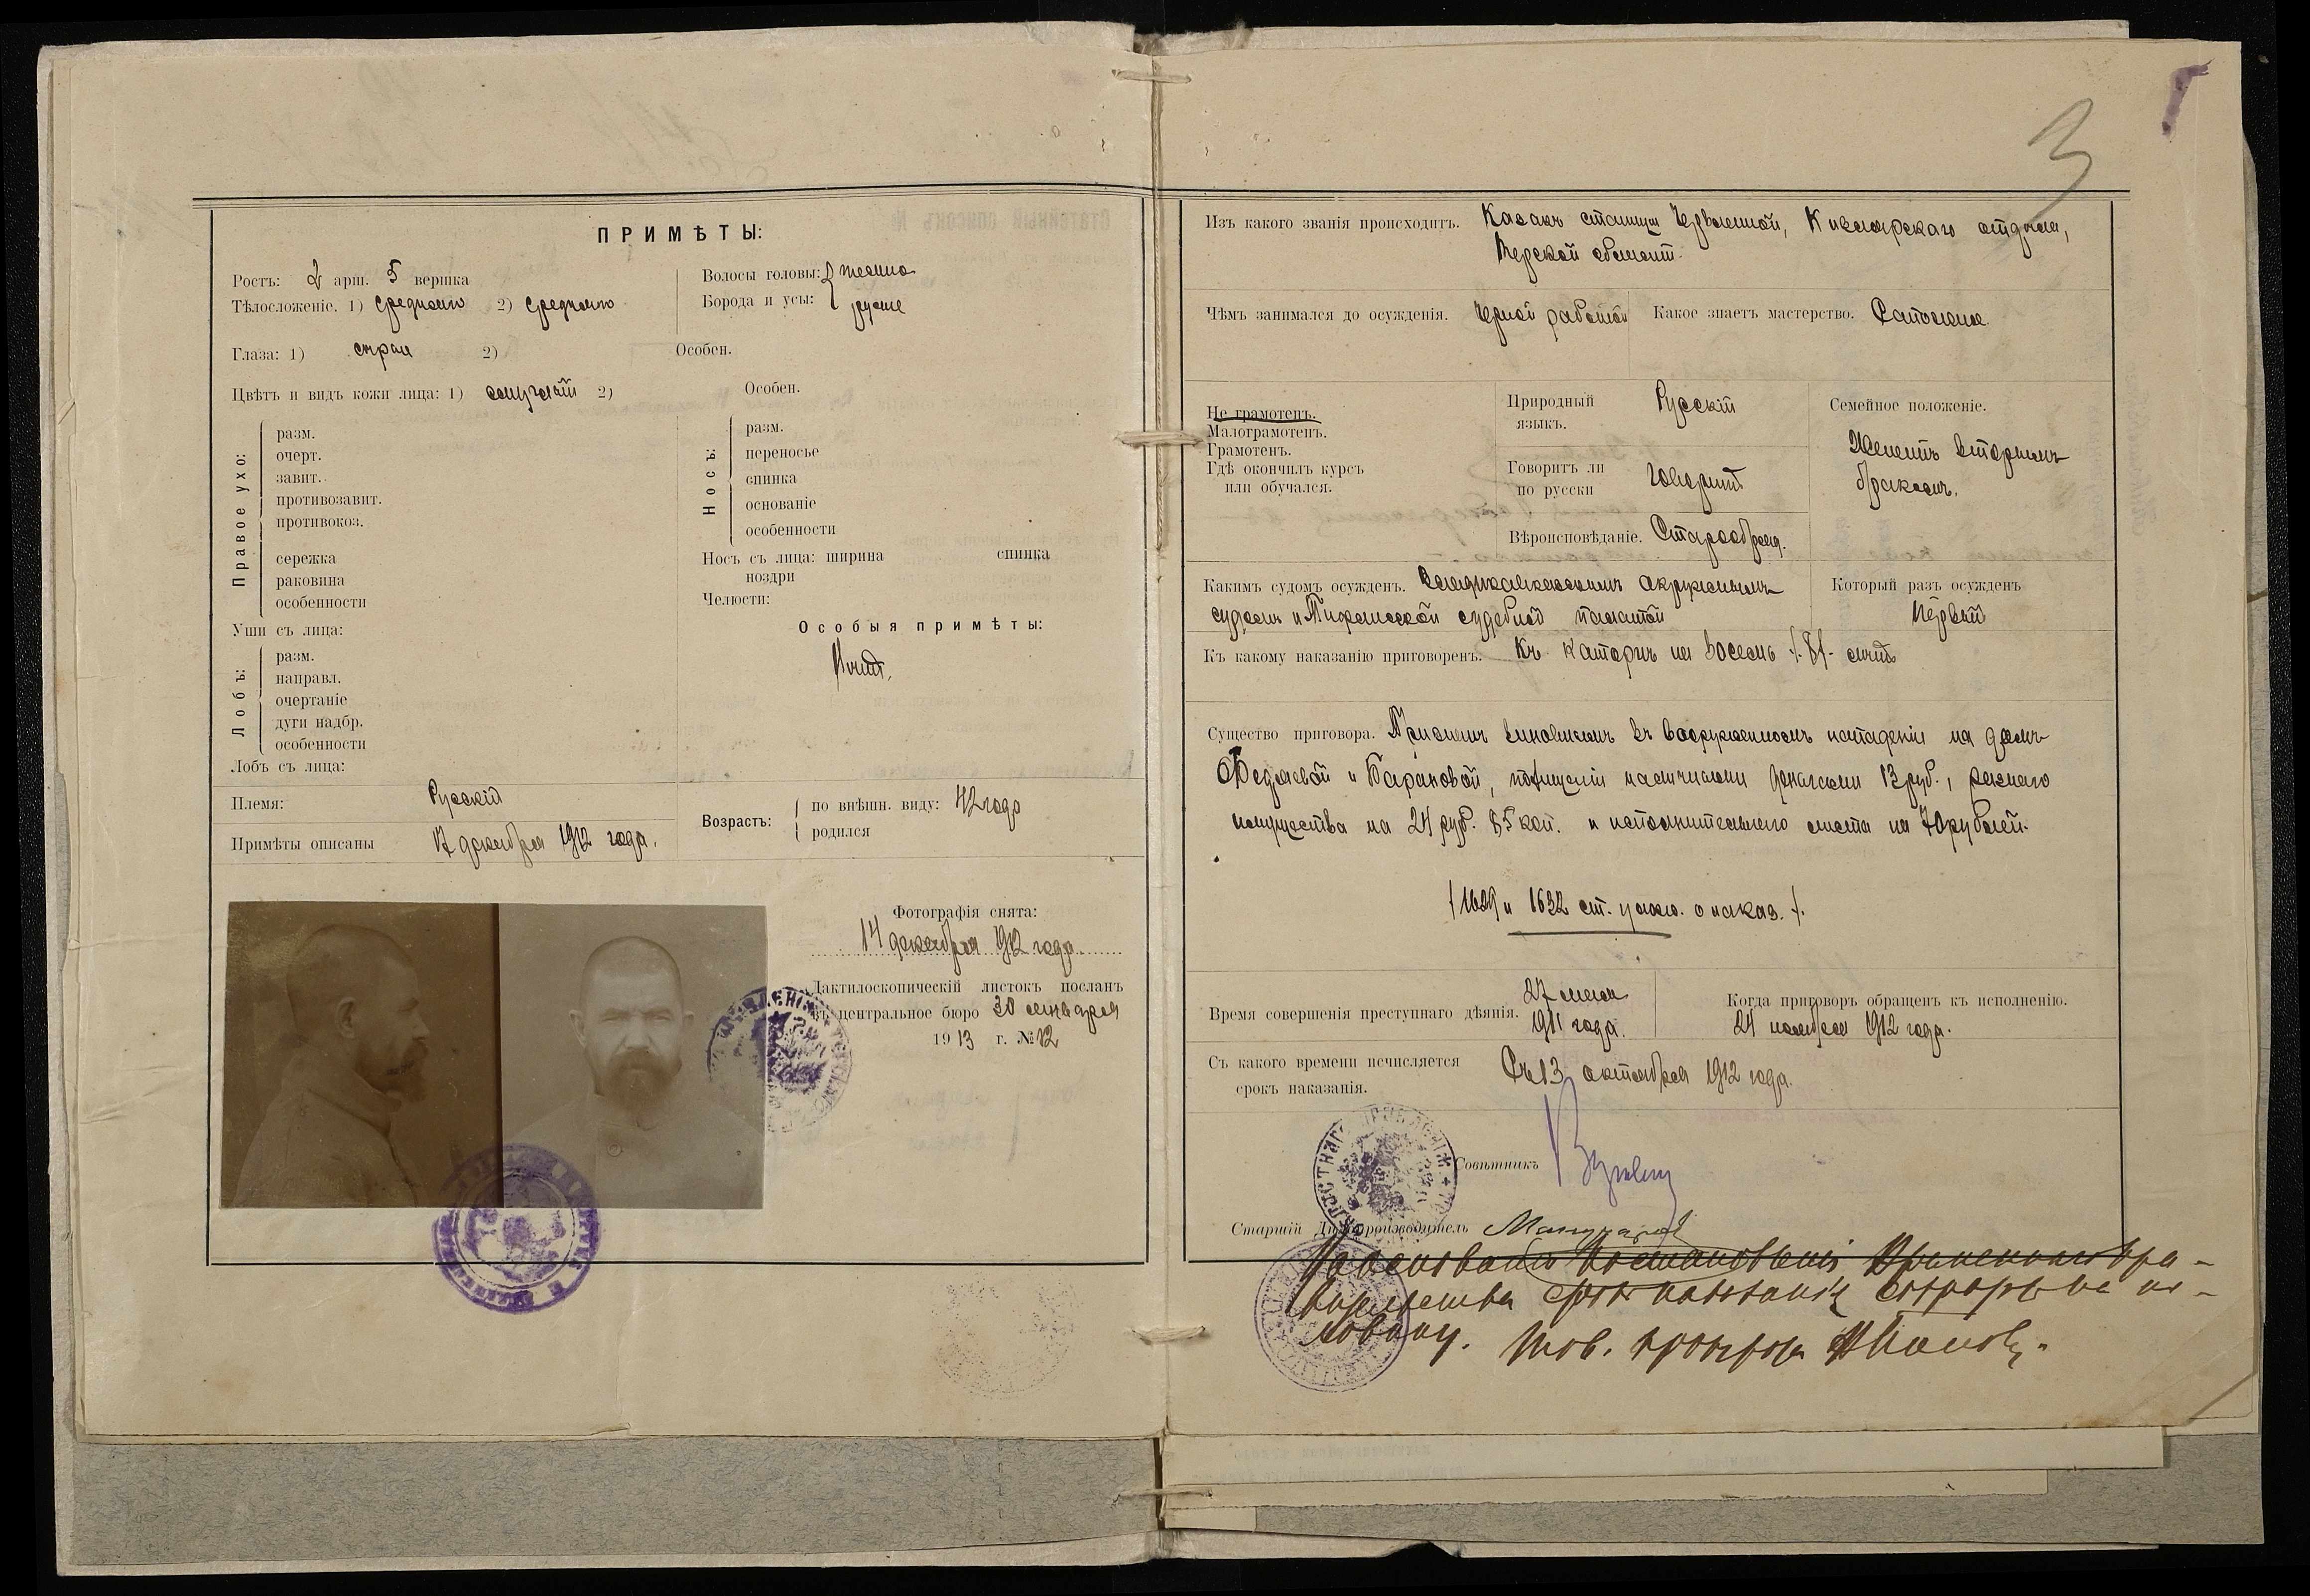 3
ПРИМѢТЫ:
Ростъ: 2 арш. 5 вершка
Тѣлосложеніе. 1) Средняго 2) Средняго
Волосы головы: темно
Борода и усы: русые
Глаза: 1) 2)
Особен.
Цвѣтъ и видъ кожи лица: 1) смуглый 2)
Особен.
Правое ухо:
разм.
очерт.
завит.
противозавит.
противокоз.
сережка
раковина
особенности
Носъ:
разм.
переносье
спинка
основаніе
особенности
Носъ съ лица: ширина спинка
ноздри
Челюсти:
Уши съ лица:
Особыя примѣты:
Лобъ:
разм.
направл.
очертаніе
дуги надбр.
особенности
Лобъ съ лица:
Племя: Русскій
Примѣты описаны 17 декабря 1912 года.
Возрастъ:
по внѣшн. виду: 42 года
родился
Фотографія снята:
14 декабря 1912 года
Дактилоскопическій листокъ посланъ
въ центральное бюро 30 января
1913 г. № 12
Изъ какого званія происходитъ. Казакъ станицы Червленной, Кизлярскаго отдѣла,
Терской област.
Чѣмъ занимался до осужденія. Черной работой
Какое знаетъ мастерство. Сапожное.
Не грамотенъ.
Малограмотенъ.
Грамотенъ.
Гдѣ окончилъ курсъ
или обучался.
Природный языкъ. Русскій
Говоритъ ли по русски Говоритъ
Вѣроисповѣданіе. Старообряд.
Семейное положеніе.
Женатъ вторымъ
бракомъ.
Какимъ судомъ осужденъ. Владикавказскимъ окружнымъ
судомъ и Тифлисской судебной палатой
Который разъ осужденъ
Первый
Къ какому наказанію приговоренъ. Къ каторгѣ на восемь /8/ лѣтъ
Существо приговора. Признанъ виновнымъ въ вооруженномъ нападеніи на домъ
Федяевой и Барановой, похищеніи наличными деньгами 13 руб., разнаго
имущества на 24 руб. 85 коп. и исполнительнаго листа на 70 рублей.
/1629 и 1632 ст. улож. о наказ./.
Время совершенія преступнаго дѣянія. 27 мая
1911 года.
Когда приговоръ обращенъ къ исполненію.
24 ноября 1912 года.
Съ какого времени исчисляется
срокъ наказанія. Съ 13 октября 1912 года.
Совѣтникъ
Старшій Дѣлопроизводитель
На основаніи постановленія Временнаго Пра-
вительства срокъ наказанія сокращенъ на-
половину. Тов. прокурора Ивановъ.